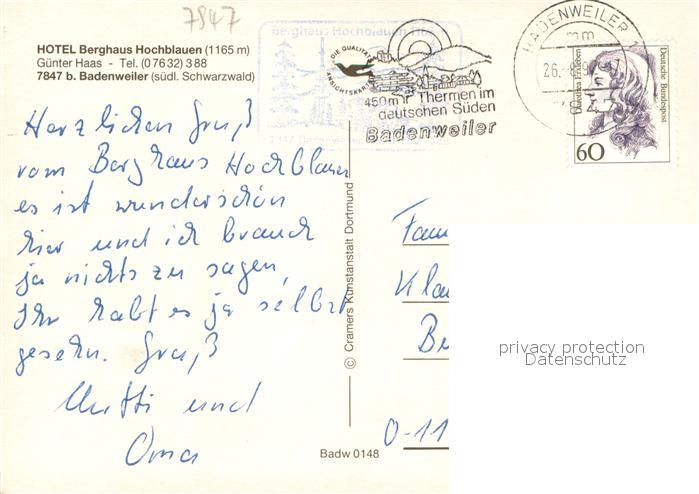 7847
HOTEL Berghaus Hochblauen (1165 m)
Günter Haas - Tel. (07632) 388
7847 b. Badenweiler (südl. Schwarzwald)
Berghaus Hochblauen
DIE QUALITÄTS
ANSICHTSKARTE
450m Thermen im
deutschen Süden
Badenweiler
BADENWEILER 1
mm
26.
Dorothea Erxleben
Deutsche Bundespost
60
Herzlichen Gruß
vom Berghaus Hochblauen
es ist wunderschön
hier und ich brauch
ja nichts zu sagen,
Ihr habt es ja selbst
gesehn. Gruß
Mutti und
Oma
© Cramers Kunstanstalt Dortmund
Fam
Kla
Be
O-11
Badw 0148
privacy protection
Datenschutz